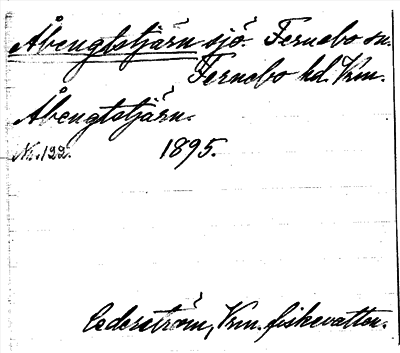 Åbengtstjärn sjö. Fernebo sn.
Fernebo hd. Vrm.
Åbengtstjärn.
Nr. 122. 1895.
Cederström, Vrm. fiskevatten.